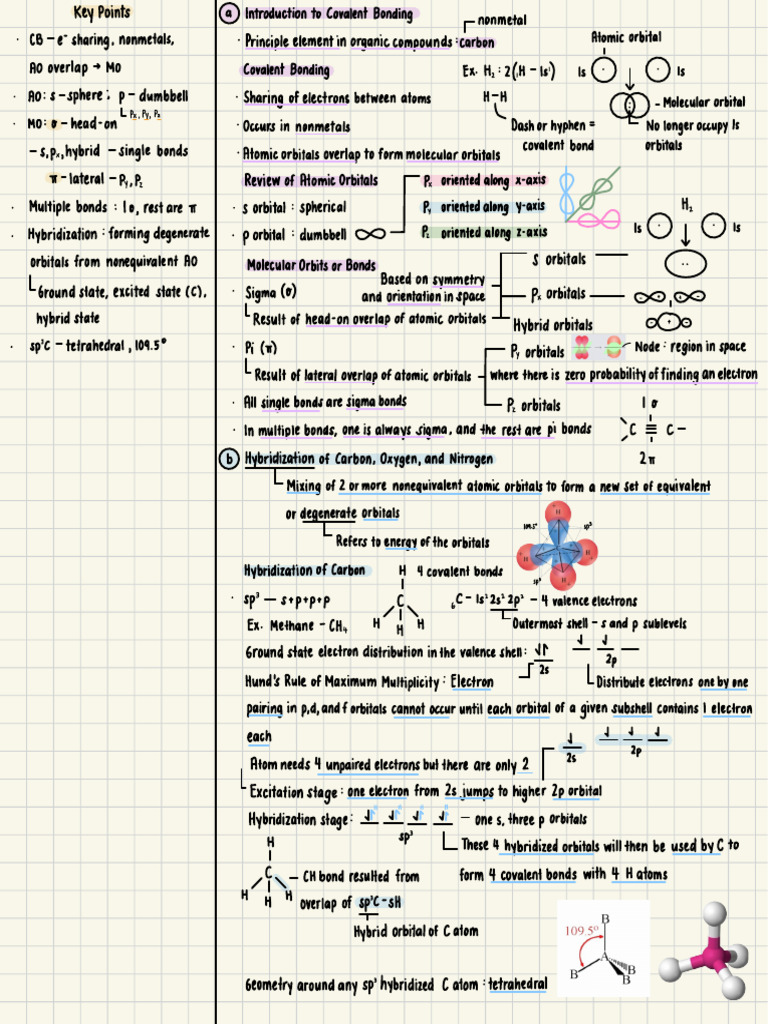 Key Points
· CB – e⁻ sharing, nonmetals,
AO overlap → MO
· AO: s – sphere ; p – dumbbell
Px, Py, Pz
· MO: σ – head-on
– s, px, hybrid – single bonds
π – lateral – Py, Pz
· Multiple bonds : 1σ, rest are π
· Hybridization : forming degenerate
orbitals from nonequivalent AO
Ground state, excited state (C),
hybrid state
· sp³C – tetrahedral, 109.5°
a Introduction to Covalent Bonding
nonmetal
· Principle element in organic compounds : carbon
Atomic orbital
Covalent Bonding
Ex. H₂ : 2(₁H – 1s¹)
1s
1s
· Sharing of electrons between atoms
H–H
– Molecular orbital
· Occurs in nonmetals
Dash or hyphen =
covalent bond
No longer occupy 1s
orbitals
· Atomic orbitals overlap to form molecular orbitals
Review of Atomic Orbitals
Px oriented along x-axis
· s orbital : spherical
Py oriented along y-axis
· p orbital : dumbbell
Pz oriented along z-axis
H₂
1s
1s
Molecular Orbits or Bonds
· Sigma (σ)
Based on symmetry
and orientation in space
S orbitals
Px orbitals
Hybrid orbitals
Result of head-on overlap of atomic orbitals
· Pi (π)
Py orbitals
Node : region in space
Result of lateral overlap of atomic orbitals
where there is zero probability of finding an electron
Pz orbitals
· All single bonds are sigma bonds
1 σ
· In multiple bonds, one is always sigma, and the rest are pi bonds
C ≡ C –
2 π
b Hybridization of Carbon, Oxygen, and Nitrogen
Mixing of 2 or more nonequivalent atomic orbitals to form a new set of equivalent
or degenerate orbitals
Refers to energy of the orbitals
H
109.5°
sp³
H
H
sp³
H
Hybridization of Carbon
4 covalent bonds
H
C
H
H
H
· sp³ — s+p+p+p
₆C – 1s² 2s² 2p² – 4 valence electrons
Ex. Methane – CH₄
Outermost shell – s and p sublevels
Ground state electron distribution in the valence shell :
2s
2p
Hund's Rule of Maximum Multiplicity : Electron
Distribute electrons one by one
pairing in p,d, and f orbitals cannot occur until each orbital of a given subshell contains 1 electron
each
2s
2p
Atom needs 4 unpaired electrons but there are only 2
Excitation stage : one electron from 2s jumps to higher 2p orbital
Hybridization stage :
sp³
— one s, three p orbitals
These 4 hybridized orbitals will then be used by C to
form 4 covalent bonds with 4 H atoms
H
C
H
H
H
– CH bond resulted from
overlap of sp³C – sH
Hybrid orbital of C atom
109.5°
B
A
B
B
B
Geometry around any sp³ hybridized C atom : tetrahedral